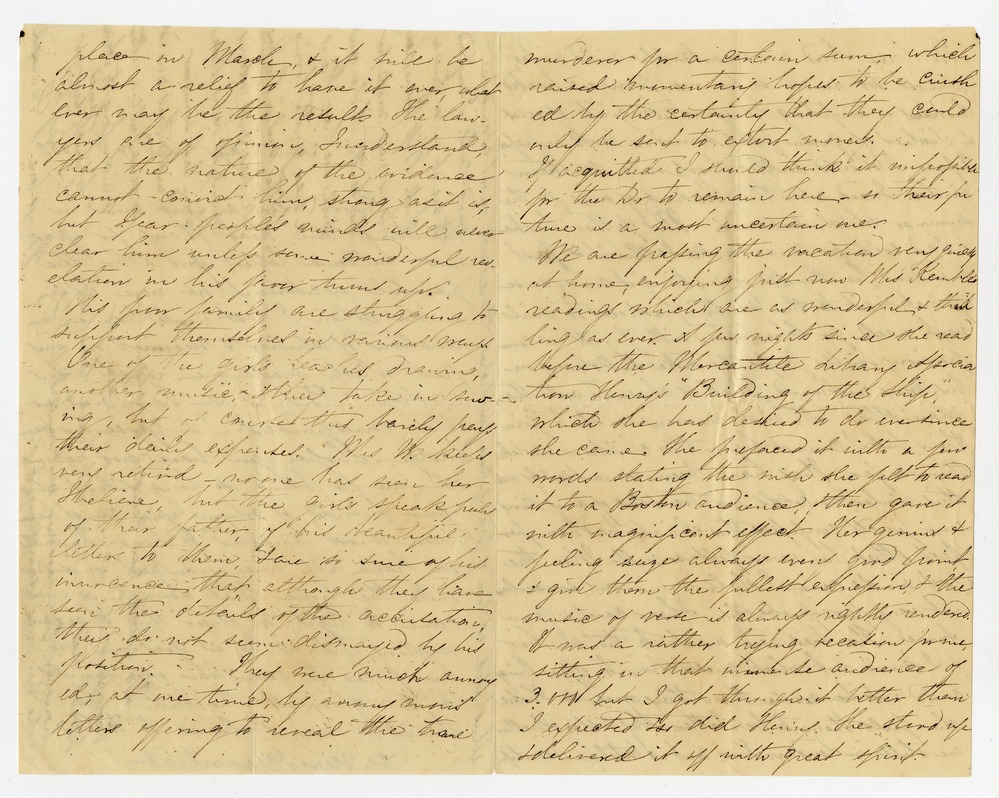 place in March, & it will be
almost a relief to have it over what
ever may be the result. The law-
yers are of opinion, I understand,
that the nature of the evidence
cannot convict him, strong as it is,
but I fear peoples minds will never
clear him unless some wonderful rev-
elation in his favor turns up.
His poor family are struggling to
support themselves in various ways
One of the girls teaches drawing,
another music & they take in sew-
ing, but of course this barely pays
their daily expenses. Mrs W. keeps
very retired - no one has seen her
I believe, but the girls speak freely
of their father, of his beautiful
letters to them, & are so sure of his
innocence that although they have
seen the details of the accusation,
they do not seem dismayed by his
position. They were much annoy
ed, at one time, by anonymous
letters offering to reveal the true
murderer for a certain sum, which
raised momentary hopes to be crush
ed by the certainty that they could
only be sent to extort money.
If acquitted I should think it impossible
for the Dr to remain here - so their fu
ture is a most uncertain one.
We are passing the vacation very quietly
at home, enjoying just now Mrs Kemble's
readings which are as wonderful & thril
ling as ever. A few nights since she read
before the Mercantile Library Associa
tion Henry's "Building of the Ship,"
which she has desired to do ever since
she came. She prefaced it with a few
words stating the wish she felt to read
it to a Boston audience, then gave it
with magnificent effect. Her genius &
feeling seize always every good point,
& give them the fullest expression, & the
music of verse is always rightly rendered.
It was a rather trying occasion for me,
sitting in that immense audience of
3.000 but I got through it better than
I expected & so did Henry. She stood up
& delivered it off with great spirit.